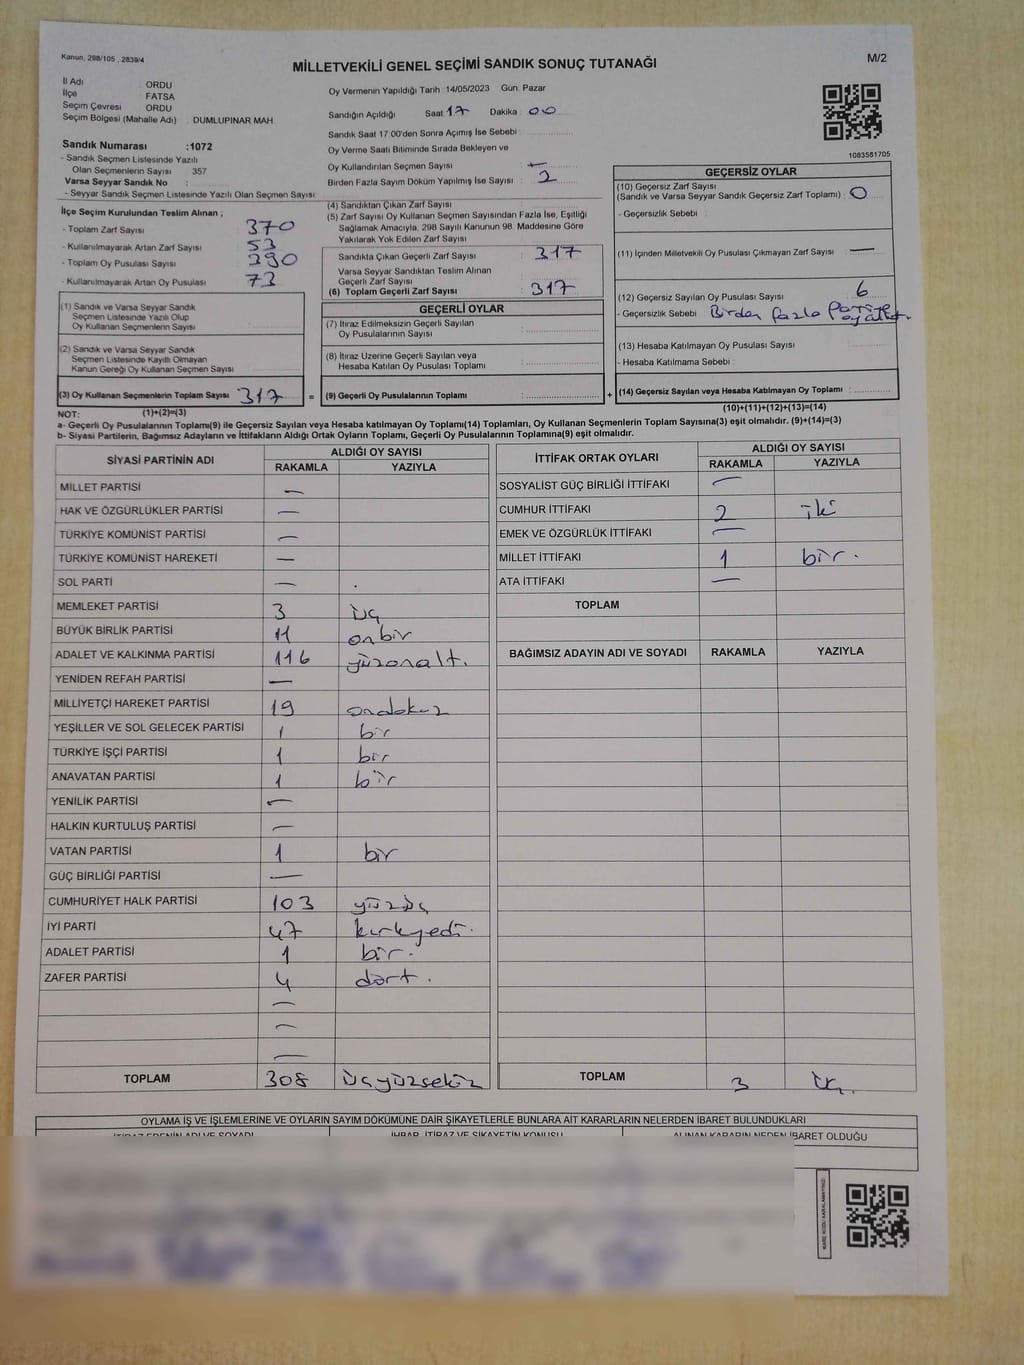 Kanun, 298/105 , 2839/4
MİLLETVEKİLİ GENEL SEÇİMİ SANDIK SONUÇ TUTANAĞI
M/2
İl Adı ORDU
İlçe FATSA
Seçim Çevresi ORDU
Seçim Bölgesi (Mahalle Adı) : DUMLUPINAR MAH.
Sandık Numarası :1072
- Sandık Seçmen Listesinde Yazılı
Olan Seçmenlerin Sayısı 357
Varsa Seyyar Sandık No :
- Seyyar Sandık Seçmen Listesinde Yazılı Olan Seçmen Sayısı:
Oy Vermenin Yapıldığı Tarih :14/05/2023 Gün: Pazar
Sandığın Açıldığı Saat 17 Dakika : 00
Sandık Saat 17:00'den Sonra Açımış İse Sebebi :
Oy Verme Saati Bitiminde Sırada Bekleyen ve
Oy Kullandırılan Seçmen Sayısı : —
Birden Fazla Sayım Döküm Yapılmış İse Sayısı : 2
1083581705
İlçe Seçim Kurulundan Teslim Alınan ;
- Toplam Zarf Sayısı : 370
- Kullanılmayarak Artan Zarf Sayısı : 53
- Toplam Oy Pusulası Sayısı : 390
- Kullanılmayarak Artan Oy Pusulası : 73
(1) Sandık ve Varsa Seyyar Sandık
Seçmen Listesinde Yazılı Olup
Oy Kullanan Seçmenlerin Sayısı :
(2) Sandık ve Varsa Seyyar Sandık
Seçmen Listesinde Kayıtlı Olmayan
Kanun Gereği Oy Kullanan Seçmen Sayısı :
(3) Oy Kullanan Seçmenlerin Toplam Sayısı : 317
(4) Sandıktan Çıkan Zarf Sayısı :
(5) Zarf Sayısı Oy Kullanan Seçmen Sayısından Fazla İse, Eşitliği
Sağlamak Amacıyla, 298 Sayılı Kanunun 98. Maddesine Göre
Yakılarak Yok Edilen Zarf Sayısı :
Sandıkta Çıkan Geçerli Zarf Sayısı : 317
Varsa Seyyar Sandıktan Teslim Alınan
Geçerli Zarf Sayısı :
(6) Toplam Geçerli Zarf Sayısı : 317
GEÇERLİ OYLAR
(7) İtiraz Edilmeksizin Geçerli Sayılan
Oy Pusulalarının Sayısı :
(8) İtiraz Üzerine Geçerli Sayılan veya
Hesaba Katılan Oy Pusulası Toplamı :
= (9) Geçerli Oy Pusulalarının Toplamı : +
GEÇERSİZ OYLAR
(10) Geçersiz Zarf Sayısı
(Sandık ve Varsa Seyyar Sandık Geçersiz Zarf Toplamı) : 0
- Geçersizlik Sebebi :
(11) İçinden Milletvekili Oy Pusulası Çıkmayan Zarf Sayısı : —
(12) Geçersiz Sayılan Oy Pusulası Sayısı : 6
- Geçersizlik Sebebi : Birden fazla Partiye
(13) Hesaba Katılmayan Oy Pusulası Sayısı :
- Hesaba Katılmama Sebebi :
(14) Geçersiz Sayılan veya Hesaba Katılmayan Oy Toplamı :
NOT: (1)+(2)=(3) (10)+(11)+(12)+(13)=(14)
a- Geçerli Oy Pusulalarının Toplamı(9) ile Geçersiz Sayılan veya Hesaba katılmayan Oy Toplamı(14) Toplamları, Oy Kullanan Seçmenlerin Toplam Sayısına(3) eşit olmalıdır. (9)+(14)=(3)
b- Siyasi Partilerin, Bağımsız Adayların ve İttifakların Aldığı Ortak Oyların Toplamı, Geçerli Oy Pusulalarının Toplamına(9) eşit olmalıdır.
SİYASİ PARTİNİN ADI ALDIĞI OY SAYISI
RAKAMLA YAZIYLA
MİLLET PARTİSİ —
HAK VE ÖZGÜRLÜKLER PARTİSİ —
TÜRKİYE KOMÜNİST PARTİSİ —
TÜRKİYE KOMÜNİST HAREKETİ —
SOL PARTİ —
MEMLEKET PARTİSİ 3 üç
BÜYÜK BİRLİK PARTİSİ 11 onbir
ADALET VE KALKINMA PARTİSİ 116 yüzonaltı.
YENİDEN REFAH PARTİSİ —
MİLLİYETÇİ HAREKET PARTİSİ 19 ondokuz
YEŞİLLER VE SOL GELECEK PARTİSİ 1 bir
TÜRKİYE İŞÇİ PARTİSİ 1 bir
ANAVATAN PARTİSİ 1 bir
YENİLİK PARTİSİ —
HALKIN KURTULUŞ PARTİSİ —
VATAN PARTİSİ 1 bir
GÜÇ BİRLİĞİ PARTİSİ —
CUMHURİYET HALK PARTİSİ 103 yüzüç
İYİ PARTİ 47 kırkyedi.
ADALET PARTİSİ 1 bir.
ZAFER PARTİSİ 4 dört.
—
—
—
TOPLAM 308 üçyüzsekiz
İTTİFAK ORTAK OYLARI ALDIĞI OY SAYISI
RAKAMLA YAZIYLA
SOSYALİST GÜÇ BİRLİĞİ İTTİFAKI —
CUMHUR İTTİFAKI 2 iki
EMEK VE ÖZGÜRLÜK İTTİFAKI —
MİLLET İTTİFAKI 1 bir.
ATA İTTİFAKI —
TOPLAM
BAĞIMSIZ ADAYIN ADI VE SOYADI RAKAMLA YAZIYLA
TOPLAM 3 üç.
OYLAMA İŞ VE İŞLEMLERİNE VE OYLARIN SAYIM DÖKÜMÜNE DAİR ŞİKAYETLERLE BUNLARA AİT KARARLARIN NELERDEN İBARET BULUNDUKLARI
İTİRAZ EDENİN ADI VE SOYADI İHBAR, İTİRAZ VE ŞİKAYETİN KONUSU ALINAN KARARIN NEDEN İBARET OLDUĞU
KARE KODU KARALAMAYINIZ!